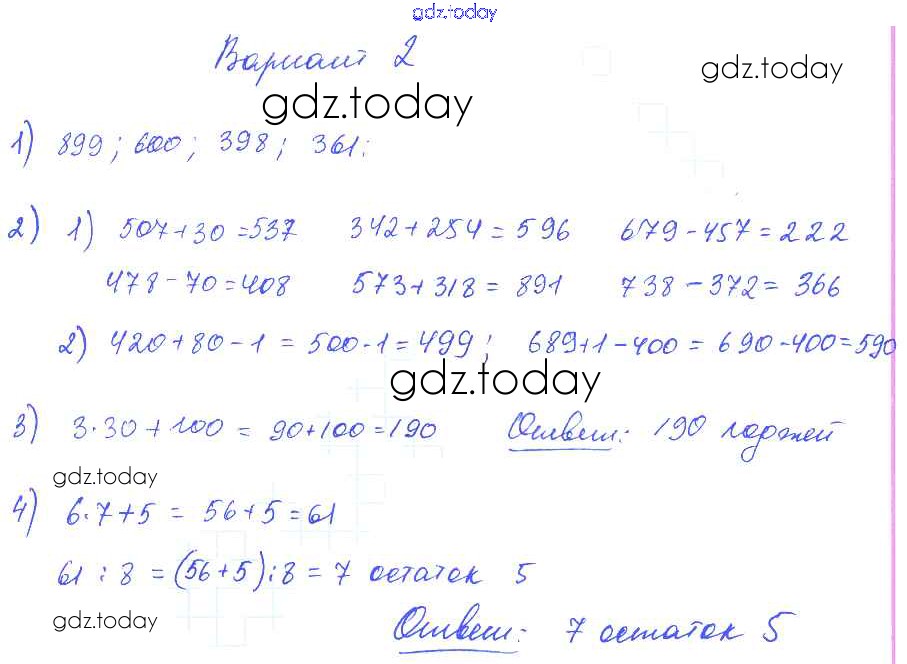 gdz.today
Вариант 2
gdz.today
gdz.today
1) 899; 600; 398; 361;
2) 1) 507+30=537 342+254=596 679-457=222
478-70=408 573+318=891 738-372=366
2) 420+80-1=500-1=499; 689+1-400=690-400=590
gdz.today
3) 3·30+100=90+100=190 Ответ: 190 гаджей
gdz.today
4) 6·7+5=56+5=61
61:8=(56+5):8=7 остаток 5
gdz.today
Ответ: 7 остаток 5